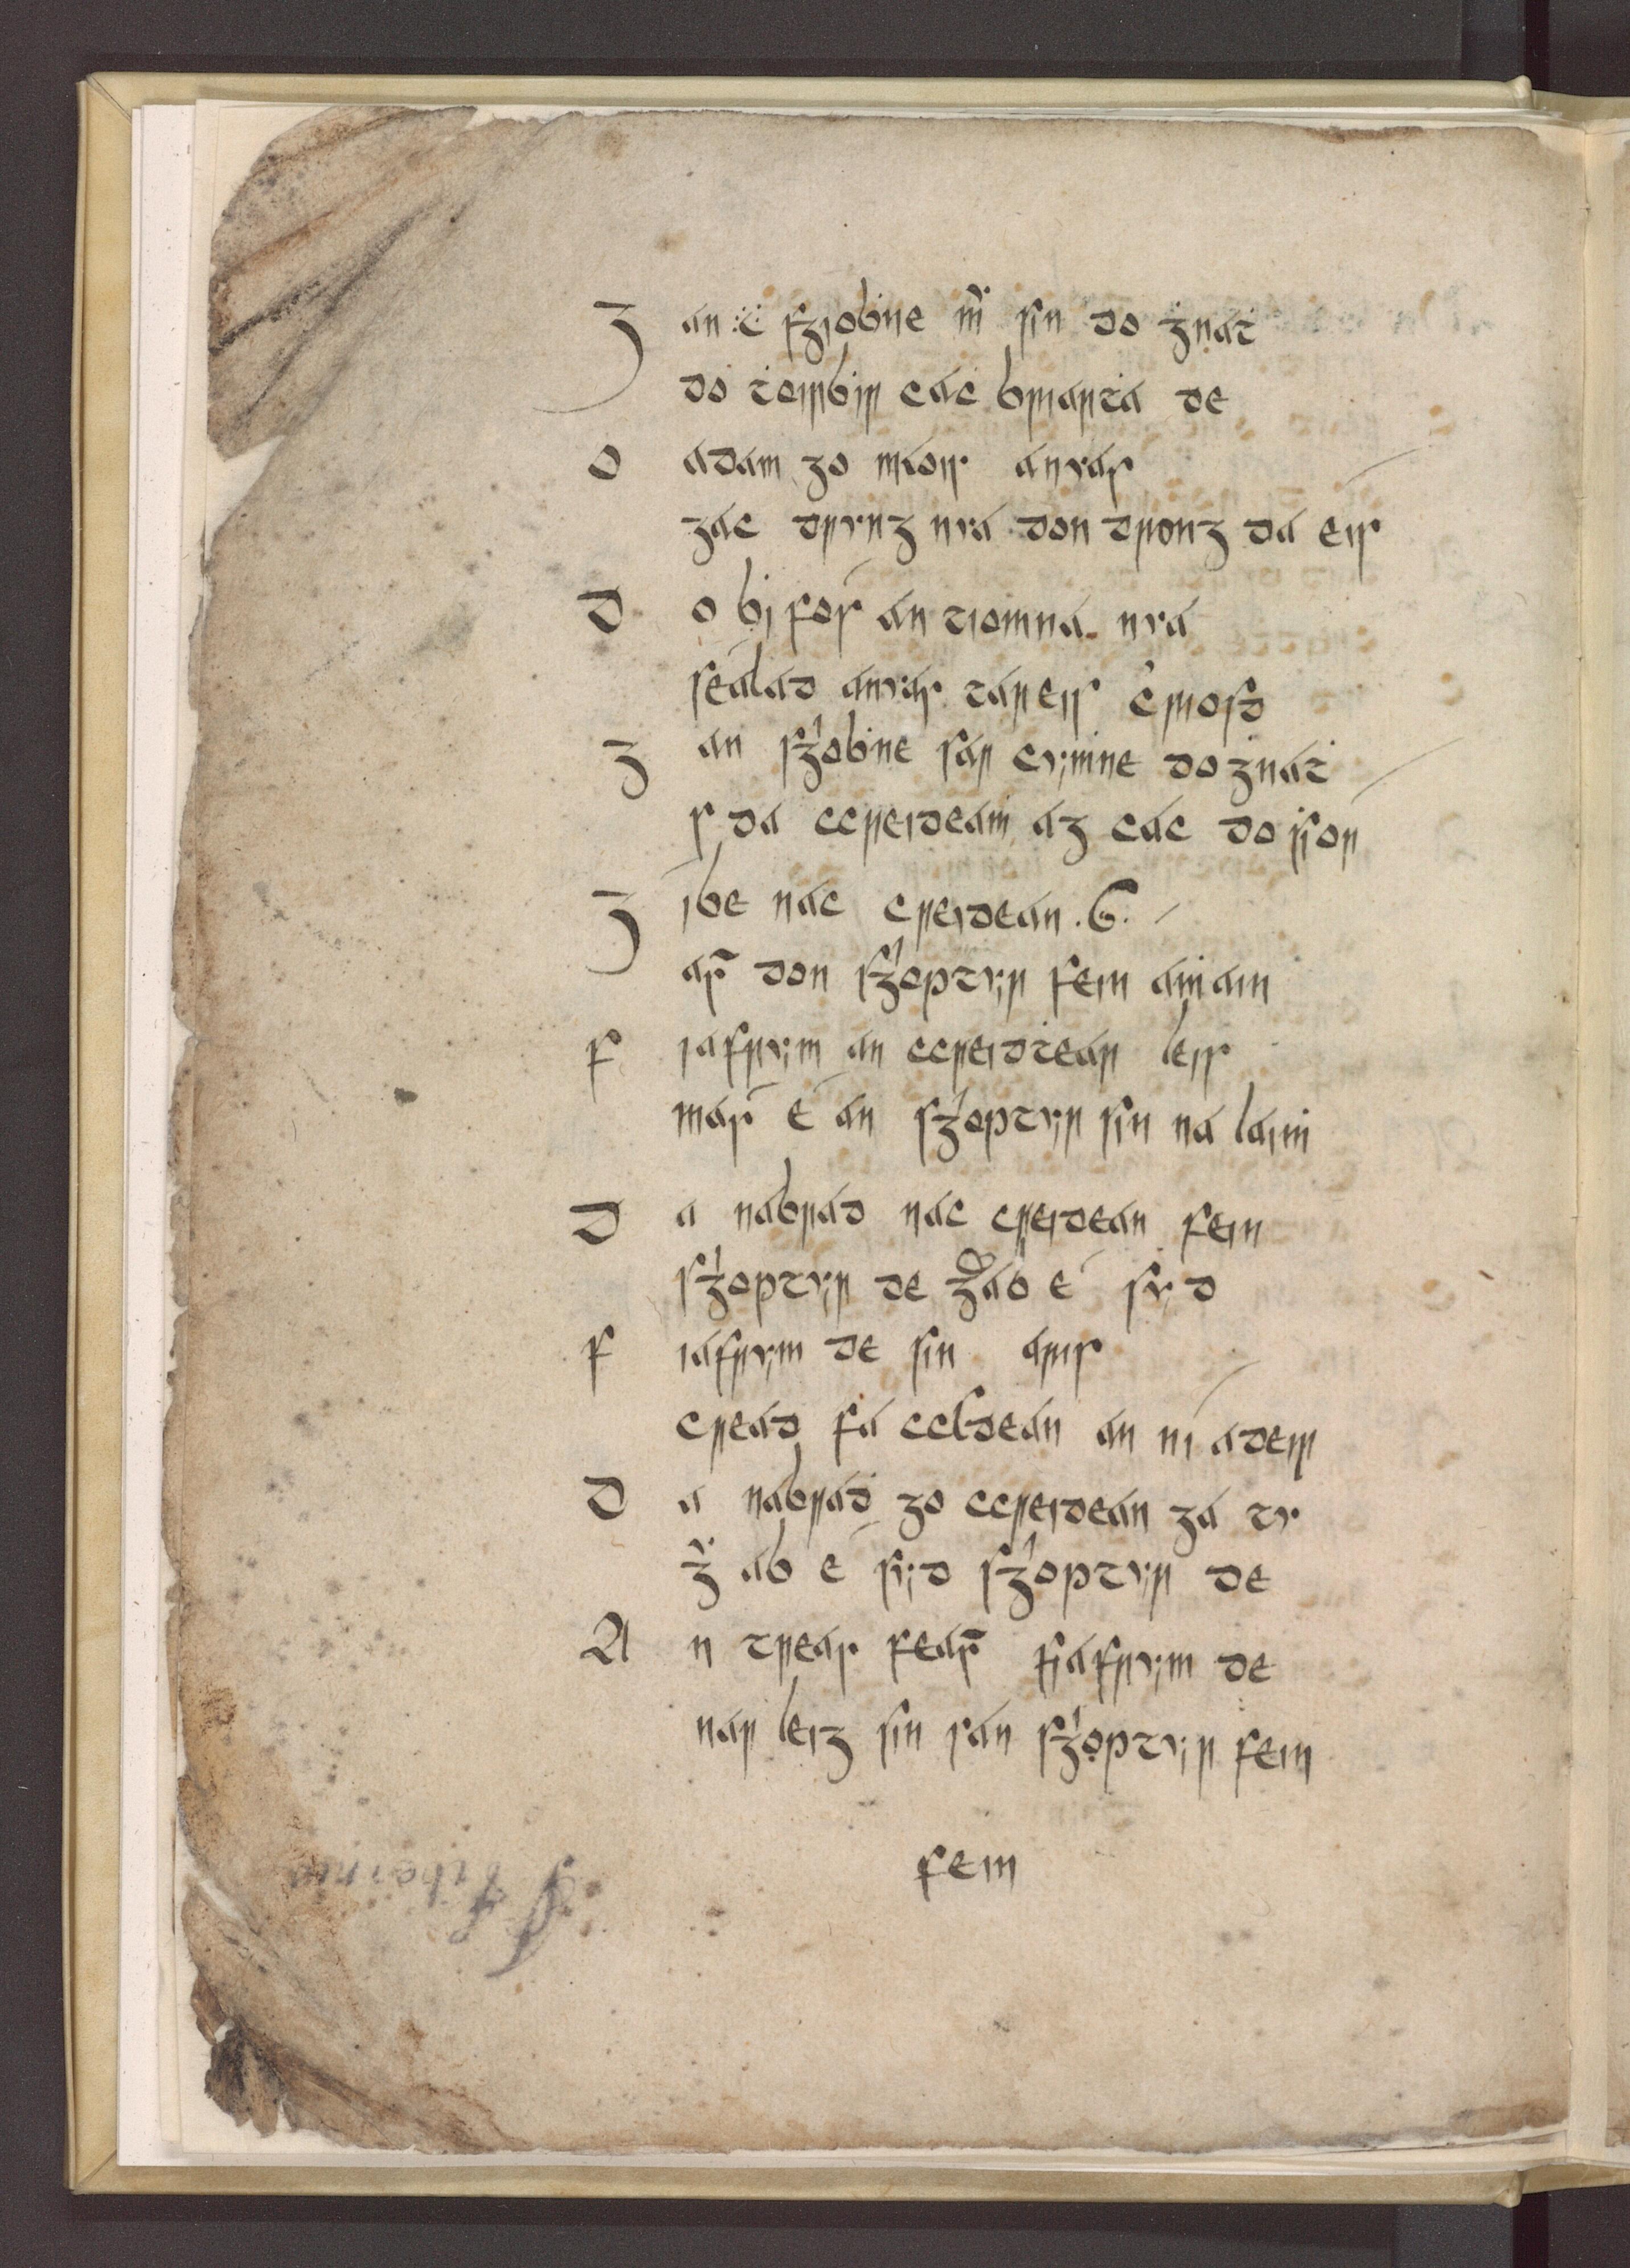 Gan sgriobne mur sin do gnaṫ
do ṫeirbir cáċ briarṫa de
O adam go maoir anuas
gaċ druing nua don droing da éis
Do bi fós an tiomna nua
séalad anuas tareis criosd
Gan sgriobne sar cuiṁne do gnáṫ
s da ccreideaṁ ag cáċ do ṡíor
Gibe naċ creidean .G.
aċt don sgrioptuir fein aṁain
Fiafruim an ccreidṫear leis
más é an sgrioptuir sin na laiṁ
Da nabrad naċ creidean fein
sgrioptuir de gurab é suid
Fiafruim de sin aris
créad fá ccreidean an ní adeir
Da nabrad go ccreidean ga tu
gur ab é suid sgrioptuir de
An treas feaċt fiafruim de
nar leig sin san sgrioptuir fein
fein